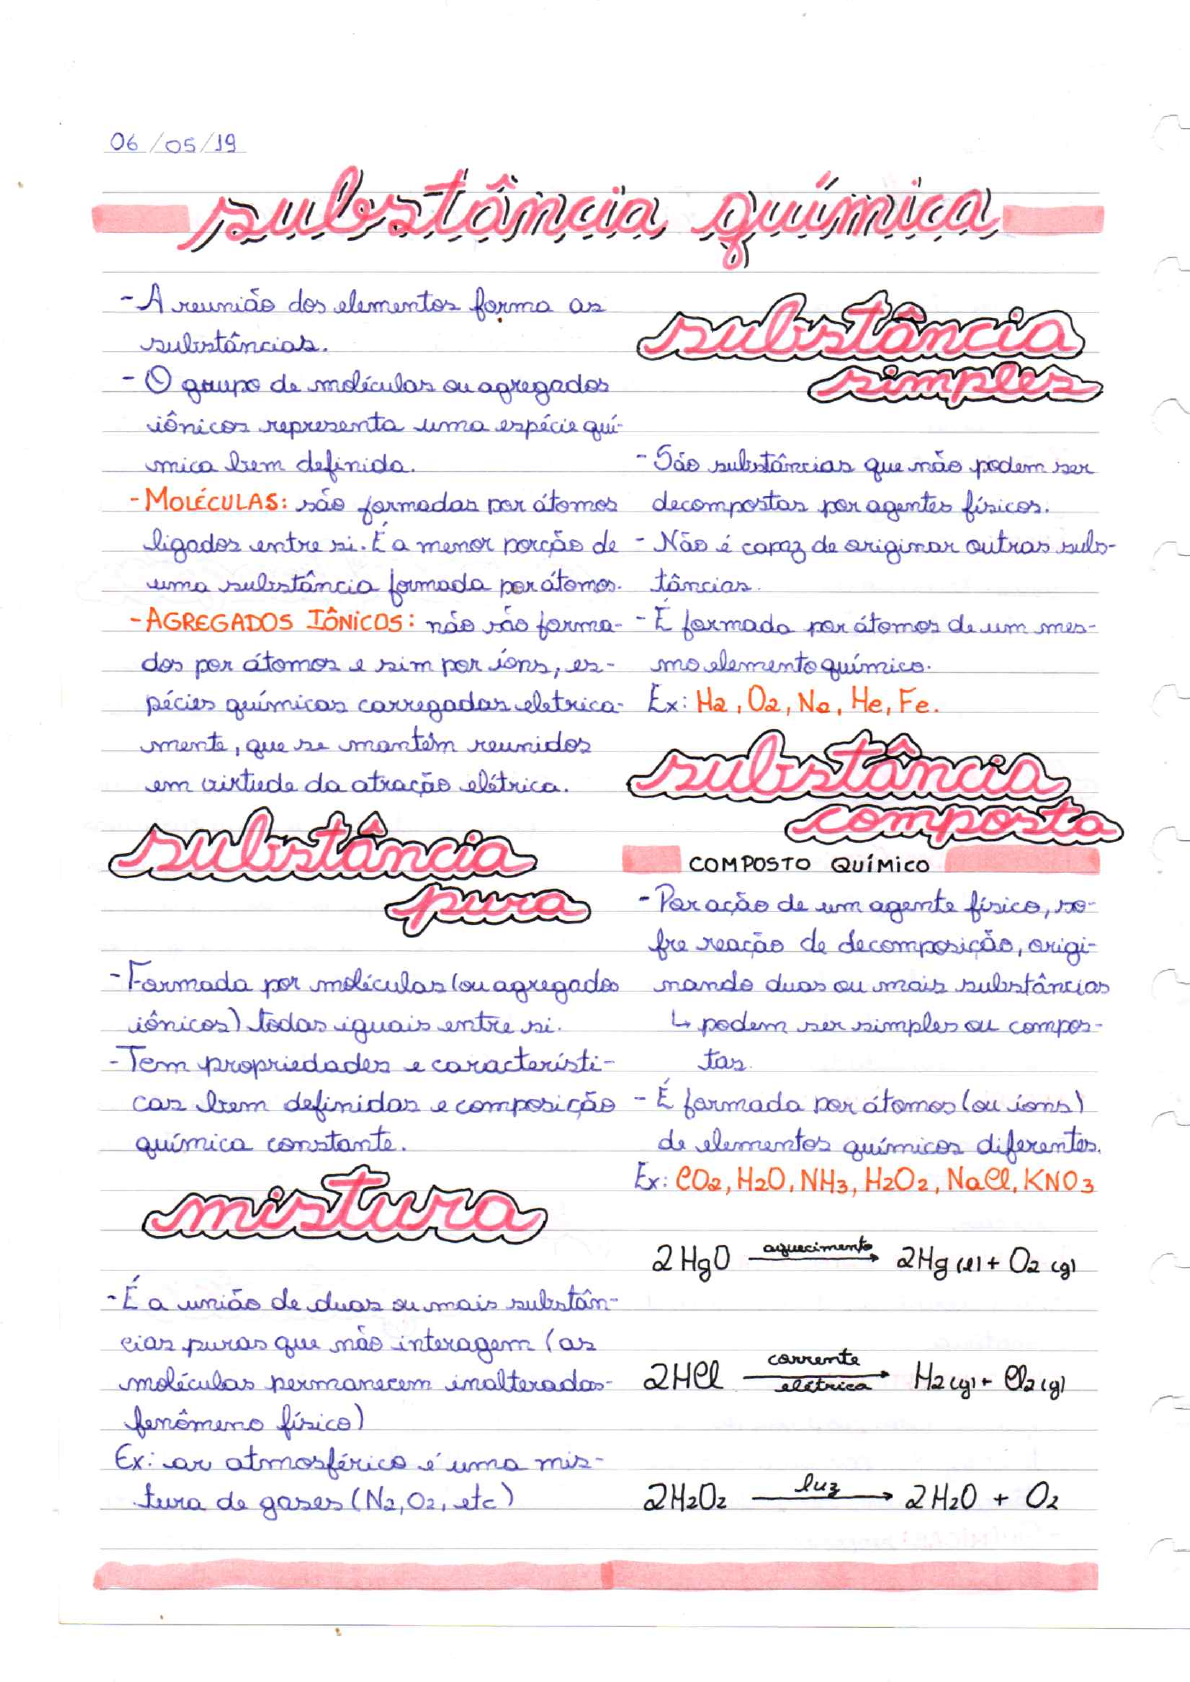 06/05/19
substância química
- A reunião dos elementos forma as
substâncias.
- O grupo de moléculas ou agregados
iônicos representa uma espécie quí-
mica bem definida.
- MOLÉCULAS: são formadas por átomos
ligados entre si. É a menor porção de
uma substância formada por átomos.
- AGREGADOS IÔNICOS: não são forma-
dos por átomos e sim por íons, es-
pécies químicas carregadas eletrica-
mente, que se mantém reunidos
em virtude da atração elétrica.
substância
pura
- Formada por moléculas (ou agregados
iônicos) todas iguais entre si.
- Tem propriedades e característi-
cas bem definidas e composição
química constante.
mistura
- É a união de duas ou mais substân-
cias puras que não interagem (as
moléculas permanecem inalteradas-
fenômeno físico)
Ex: ar atmosférico é uma mis-
tura de gases (N2, O2, etc)
substância
simples
- São substâncias que não podem ser
decompostas por agentes físicos.
- Não é capaz de originar outras subs-
tâncias.
- É formada por átomos de um mes-
mo elemento químico.
Ex: H2, O2, Na, He, Fe.
substância
composta
COMPOSTO QUÍMICO
- Por ação de um agente físico, so-
fre reação de decomposição, origi-
nando duas ou mais substâncias
↳ podem ser simples ou compos-
tas.
- É formada por átomos (ou íons)
de elementos químicos diferentes.
Ex: CO2, H2O, NH3, H2O2, NaCl, KNO3
2HgO aquecimento → 2Hg (l) + O2 (g)
2HCl corrente elétrica → H2 (g) + Cl2 (g)
2H2O2 luz → 2H2O + O2